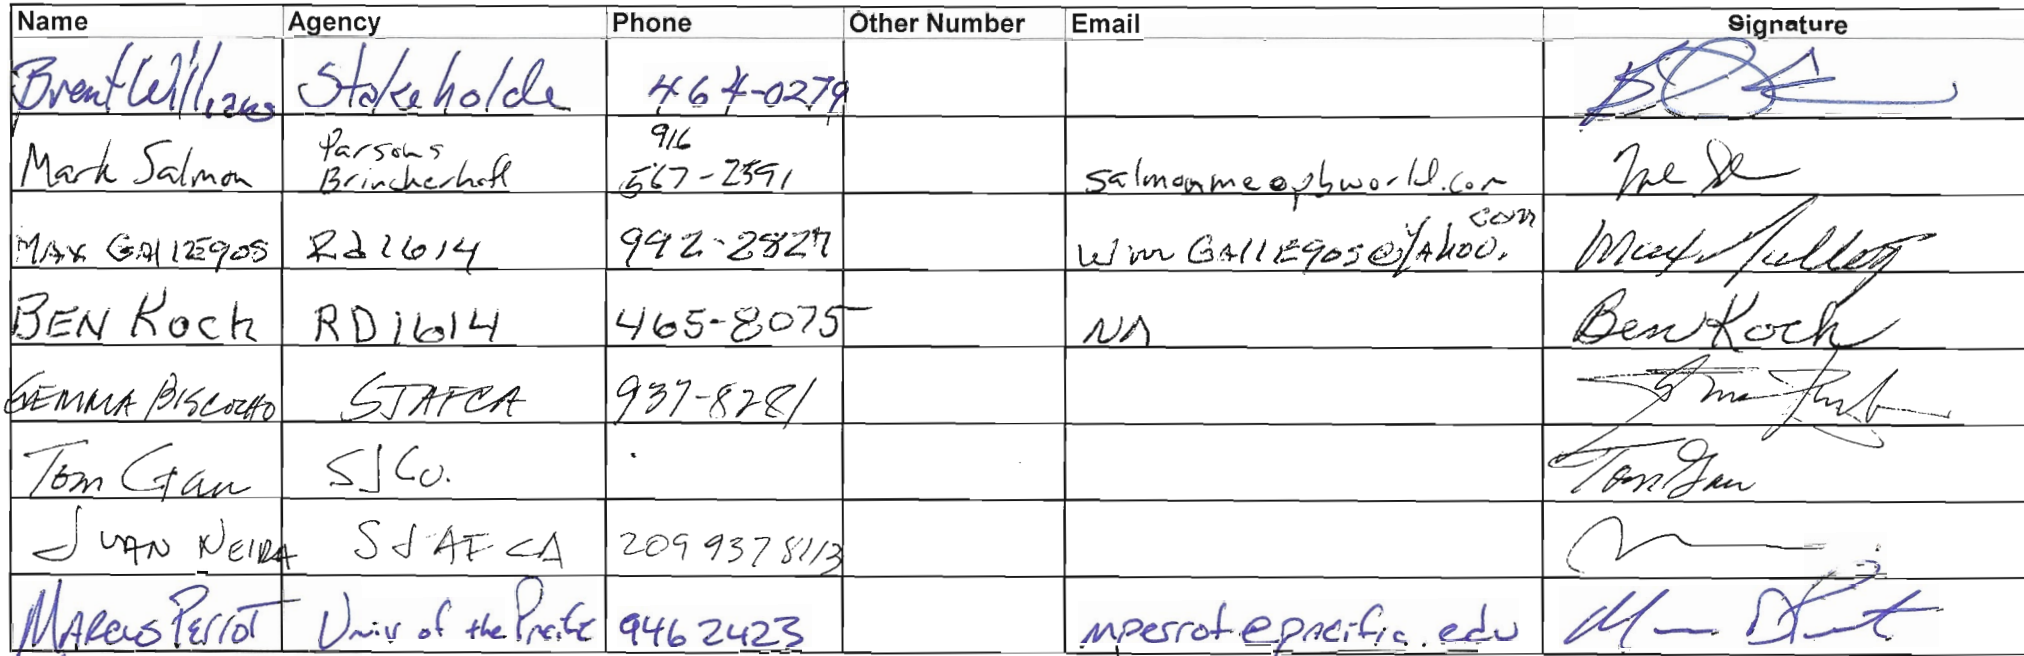 Name Agency Phone Other Number Email Signature
Brent Williams Stakeholde 464-0279
Mark Salmon Parsons Brinckerhoff 916 567-2591 salmonme@pbworld.com
MAX GAllEgos Rd 1614 992-2827 wm GAllEgos@YAHOO.com
BEN Koch RD 1614 465-8075 NA Ben Koch
GEMMA BISCOCHO SJAFCA 937-8281
Tom Gau SJ Co. Tom Gau
JUAN NEIRA SJAFCA 209 937 8113
MARCUS PERROT Univ of the Pacific 946 2423 mperrot@pacific.edu